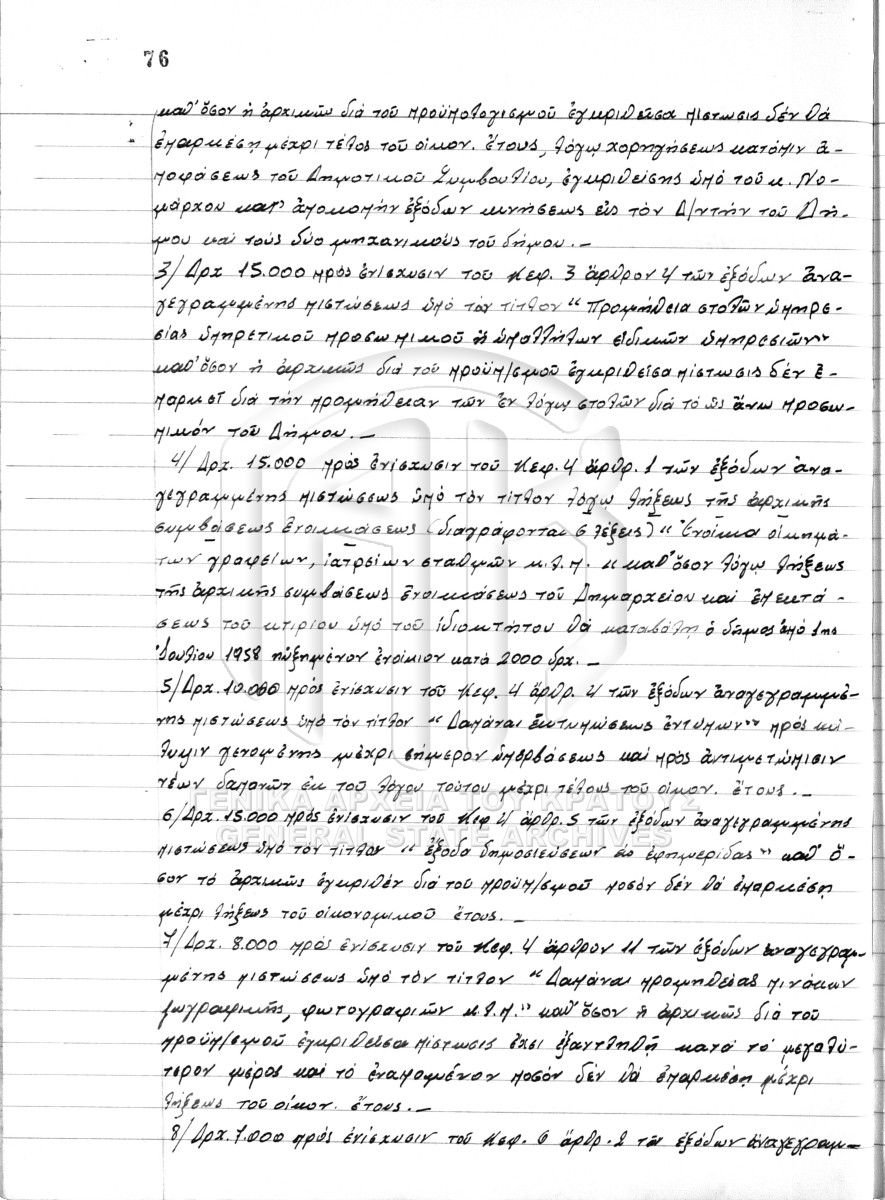 76
καθ' ὅσον ἡ ἀρχικῶς διὰ τοῦ προϋπολογισμοῦ ἐγκριθεῖσα πίστωσις δέν θά
ἐπαρκέσῃ μέχρι τέλος τοῦ οἰκον. ἔτους, λόγῳ χορηγήσεως κατόπιν ἀ-
ποφάσεως τοῦ Δημοτικοῦ Συμβουλίου, ἐγκριθείσης ὑπό τοῦ κ. Νο-
μάρχου κατ' ἀποκοπήν ἐξόδων κινήσεως εἰς τόν Δ/ντήν τοῦ Δή-
μου καί τούς δύο μηχανικούς τοῦ δήμου.-
3/ Δρχ 15.000 πρός ἐνίσχυσιν τοῦ Κεφ. 3 ἄρθρον 4 τῶν ἐξόδων ἀνα-
γεγραμμένης πιστώσεως ὑπό τόν τίτλον "Προμήθεια στολῶν ὑπηρε-
σίας ὑπηρετικοῦ προσωπικοῦ ἤ ὑπαλλήλων εἰδικῶν ὑπηρεσιῶν"
καθ' ὅσον ἡ ἀρχικῶς διά τοῦ προϋπ/σμοῦ ἐγκριθεῖσα πίστωσις δέν ἐ-
παρκεῖ διά τήν προμήθειαν τῶν ἐν λόγῳ στολῶν διά τό ὡς ἄνω προσω-
πικόν τοῦ Δήμου.-
4/ Δρχ. 15.000 πρός ἐνίσχυσιν τοῦ Κεφ. 4 ἄρθρ. 1 τῶν ἐξόδων ἀνα-
γεγραμμένης πιστώσεως ὑπό τόν τίτλον λόγῳ λήξεως τῆς ἀρχικῆς
συμβάσεως ἐνοικιάσεως (διαγράφονται 6 λέξεις) "Ἐνοίκια οἰκημά-
των γραφείων, ἰατρείων σταθμῶν κ.λ.π." καθ' ὅσον λόγῳ λήξεως
τῆς ἀρχικῆς συμβάσεως ἐνοικιάσεως τοῦ Δημαρχείου καί ἐπεκτά-
σεως τοῦ κτιρίου ὑπό τοῦ ἰδιοκτήτου θά καταβάλῃ ὁ δῆμος ἀπό 1ης
Ἰουλίου 1958 ηὐξημένον ἐνοίκιον κατά 2000 δρχ.-
5/ Δρχ. 10.000 πρός ἐνίσχυσιν τοῦ Κεφ. 4 ἄρθρ. 4 τῶν ἐξόδων ἀναγεγραμμέ-
νης πιστώσεως ὑπό τόν τίτλον "Δαπάναι ἐκτυπώσεως ἐντύπων" πρός κά-
λυψιν γενομένης μέχρι σήμερον ὑπερβάσεως καί πρός ἀντιμετώπισιν
νέων δαπανῶν ἐκ τοῦ λόγου τούτου μέχρι τέλους τοῦ οἰκον. ἔτους.-
6/ Δρχ. 15.000 πρός ἐνίσχυσιν τοῦ Κεφ 4 ἄρθρ. 5 τῶν ἐξόδων ἀναγεγραμμένης
πιστώσεως ὑπό τόν τίτλον "ἔξοδα δημοσιεύσεων εἰς ἐφημερίδας" καθ' ὅ-
σον τό ἀρχικῶς ἐγκριθέν διά τοῦ προϋπ/σμοῦ ποσόν δέν θά ἐπαρκέσῃ
μέχρι λήξεως τοῦ οἰκονομικοῦ ἔτους.-
7/ Δρχ. 8.000 πρός ἐνίσχυσιν τοῦ Κεφ. 4 ἄρθρον 11 τῶν ἐξόδων ἀναγεγραμ-
μένης πιστώσεως ὑπό τόν τίτλον "Δαπάναι προμηθείας πινάκων
ζωγραφικῆς, φωτογραφιῶν κ.λ.π." καθ' ὅσον ἡ ἀρχικῶς διά τοῦ
προϋπ/σμοῦ ἐγκριθεῖσα πίστωσις ἔχει ἐξαντληθῆ κατά τό μεγαλύ-
τερον μέρος καί τό ἐναπομένον ποσόν δέν θά ἐπαρκέσῃ μέχρι
λήξεως τοῦ οἰκον. ἔτους.-
8/ Δρχ. 7.000 πρός ἐνίσχυσιν τοῦ Κεφ. 6 ἄρθρ. 2 τῶν ἐξόδων ἀναγεγραμ-
ΓΕΝΙΚΑ ΑΡΧΕΙΑ ΤΟΥ ΚΡΑΤΟΥΣ
GENERAL STATE ARCHIVES